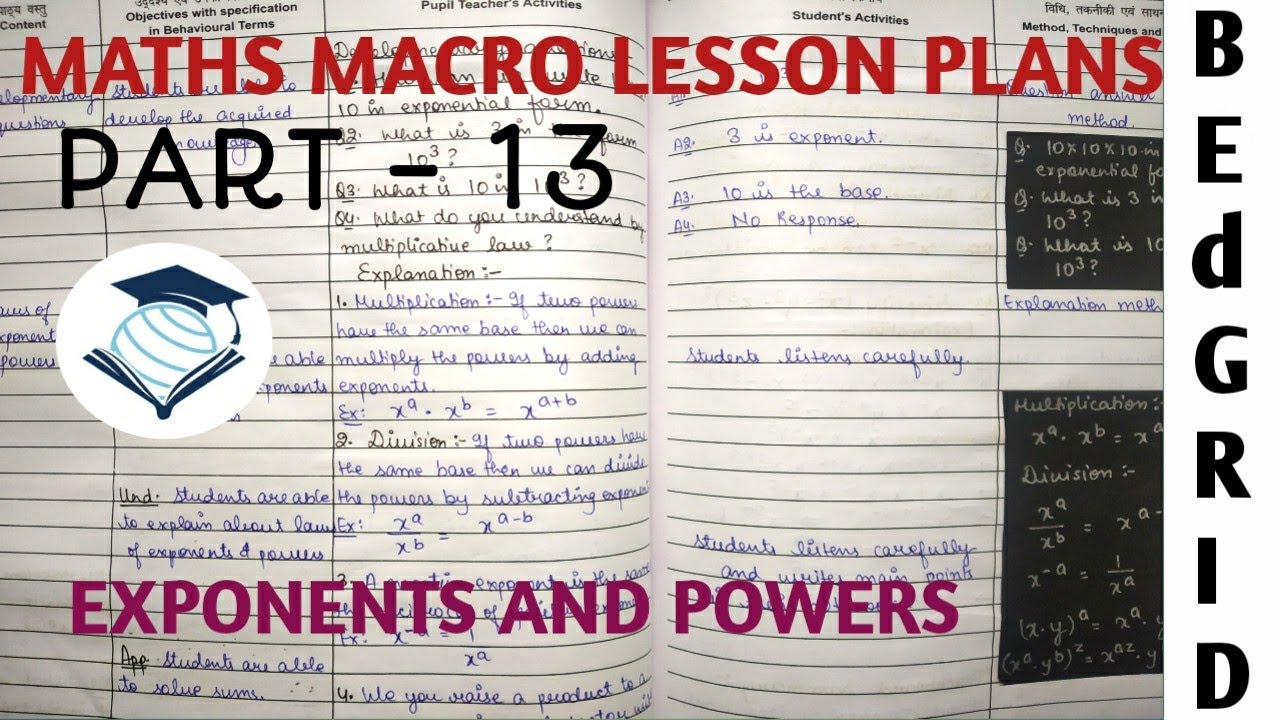 पाठ्य वस्तु
Content
Objectives with specification
in Behavioural Terms
Pupil Teacher's Activities
Student's Activities
विधि, तकनीकी एवं
Method, Techniques and
MATHS MACRO LESSON PLANS
PART - 13
EXPONENTS AND POWERS
BEdGRID
develop the acquired
10 in exponential form.
Q2: What is 3 in the form
10³?
Q3: What is 10 in 10³?
Q4: What do you understand by
multiplicative law?
Explanation :-
1. Multiplication :- If two powers
have the same base then we can
multiply the powers by adding
exponents.
Ex: xᵃ · xᵇ = xᵃ⁺ᵇ
2. Division :- If two powers have
the same base then we can divide
the powers by subtracting
Ex: xᵃ/xᵇ = xᵃ⁻ᵇ
3. A exponent is the
Ex: x⁻ᵃ = 1/xᵃ
4. We you raise a product to a
Und. Students are able
to explain about laws
of exponents & powers
App. Students are able
to solve sums.
A2. 3 is exponent.
A3. 10 is the base.
A4. No Response.
Students listens carefully.
Students listens carefully
and write main points
Question answer
method.
Q. 10×10×10 in
exponential
Q. What is 3 in
10³?
Q. What is 10
10³?
Explanation
Multiplication :-
xᵃ · xᵇ = xᵃ
Division :-
xᵃ/xᵇ = xᵃ⁻
x⁻ᵃ = 1/xᵃ
(x·y)ᵃ = xᵃ·
(xᵃ·yᵇ)ᶻ = xᵃᶻ·y